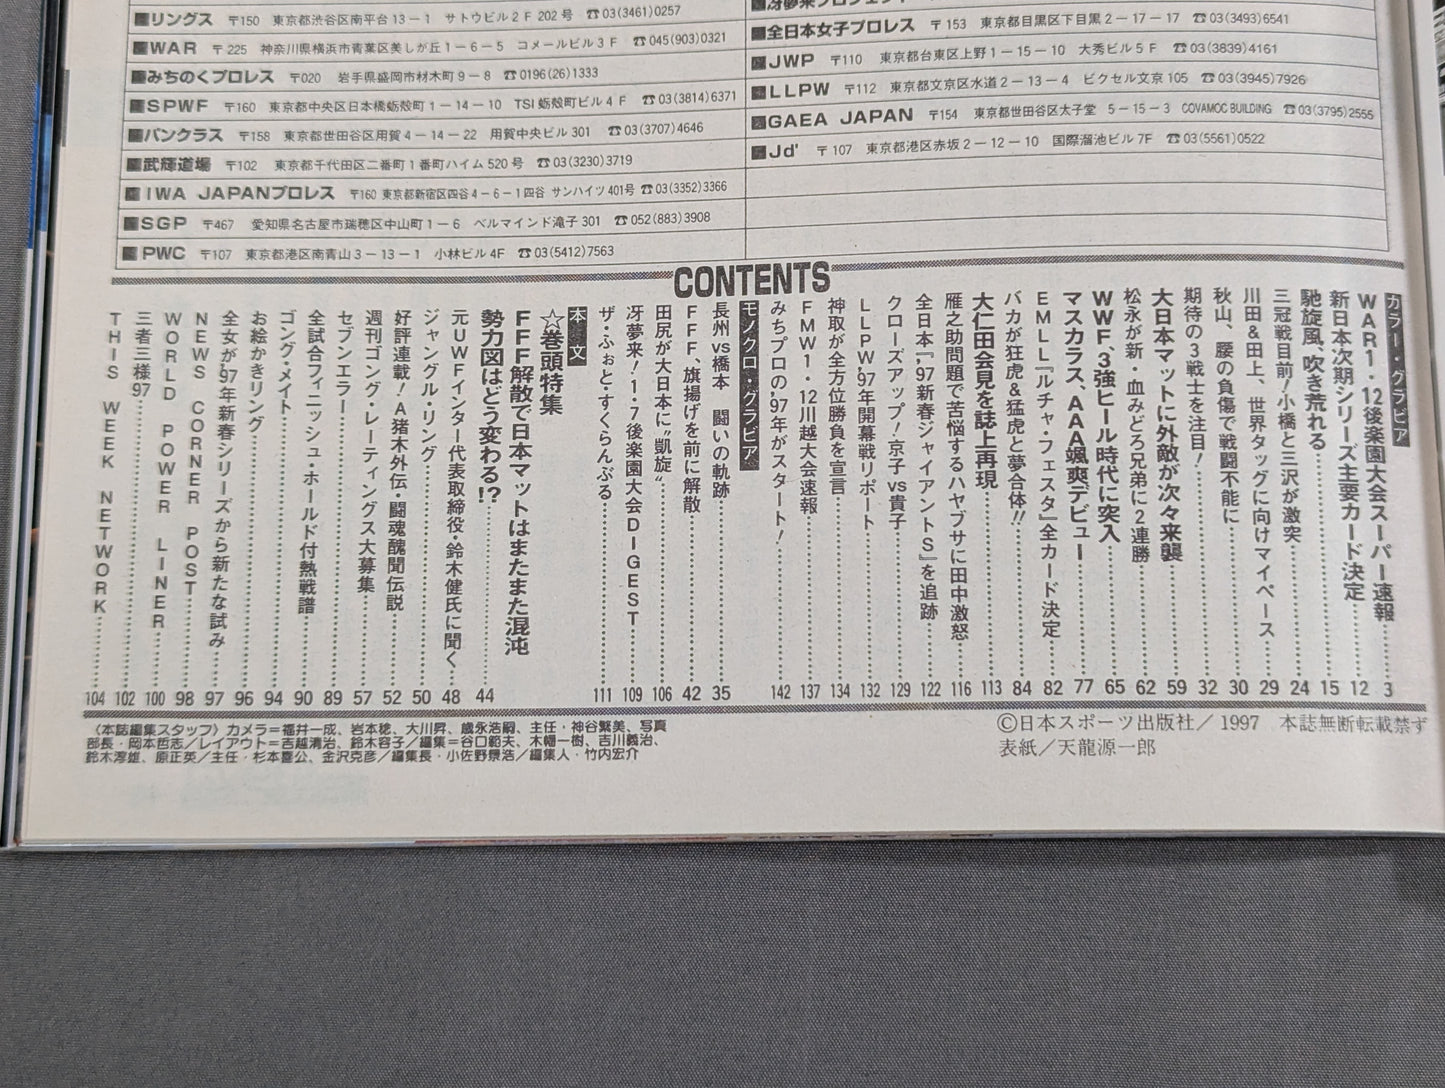 ■リングス 〒150 東京都渋谷区南平台13-1 サトウビル2F 202号 ☎03(3461)0257
■WAR 〒225 神奈川県横浜市青葉区美しが丘1-6-5 コメールビル3F ☎045(903)0321
■みちのくプロレス 〒020 岩手県盛岡市材木町9-8 ☎0196(26)1333
■SPWF 〒160 東京都中央区日本橋蛎殻町1-14-10 TSI蛎殻町ビル4F ☎03(3814)6371
■パンクラス 〒158 東京都世田谷区用賀4-14-22 用賀中央ビル301 ☎03(3707)4646
■武輝道場 〒102 東京都千代田区二番町1番町ハイム520号 ☎03(3230)3719
■IWA JAPANプロレス 〒160 東京都新宿区四谷4-6-1四谷 サンハイツ401号 ☎03(3352)3366
■SGP 〒467 愛知県名古屋市瑞穂区中山町1-6 ベルマインド滝子301 ☎052(883)3908
■PWC 〒107 東京都港区南青山3-13-1 小林ビル4F ☎03(5412)7563
■全日本女子プロレス 〒153 東京都目黒区下目黒2-17-17 ☎03(3493)6541
■JWP 〒110 東京都台東区上野1-15-10 大秀ビル5F ☎03(3839)4161
■LLPW 〒112 東京都文京区水道2-13-4 ビクセル文京105 ☎03(3945)7926
■GAEA JAPAN 〒154 東京都世田谷区太子堂 5-15-3 COVAMOC BUILDING ☎03(3795)2555
■Jd' 〒107 東京都港区赤坂2-12-10 国際溜池ビル7F ☎03(5561)0522
CONTENTS
カラー・グラビア
WAR1・12後楽園大会スーパー速報……3
新日本次期シリーズ主要カード決定……12
馳旋風、吹き荒れる……15
三冠戦目前!小橋と三沢が激突……24
川田&田上、世界タッグに向けマイペース……29
秋山、腰の負傷で戦闘不能に……30
期待の3戦士を注目!……32
大日本マットに外敵が次々来襲……59
松永が新・血みどろ兄弟に2連勝……62
WWF、3強ヒール時代に突入……65
マスカラス、AAA颯爽デビュー……77
EMLL『ルチャ・フェスタ』全カード決定……82
バカが狂虎&猛虎と夢合体!!……84
大仁田会見を誌上再現……113
雁之助問題で苦悩するハヤブサに田中激怒……116
全日本『'97新春ジャイアントS』を追跡……122
クローズアップ!京子vs貴子……129
LLPW、'97年開幕戦リポート……132
神取が全方位勝負を宣言……134
FMW1・12川越大会速報……137
みちプロの'97年がスタート!……142
モノクロ・グラビア
長州vs橋本 闘いの軌跡……35
FFF、旗揚げを前に解散……42
田尻が大日本に“凱旋”……106
冴夢来!1・7後楽園大会DIGEST……109
ザ・ふぉと・すくらんぶる……111
本文
☆巻頭特集
FFF解散で日本マットはまたまた混沌
勢力図はどう変わる!?……44
元UWFインター代表取締役・鈴木健氏に聞く……48
ジャングル・リング……50
好評連載!A猪木外伝・闘魂醜聞伝説……52
週刊ゴング・レーティングス大募集……57
セブンエラー……89
全試合フィニッシュ・ホールド付熱戦譜……90
ゴング・メイト……94
お絵かきリング……96
全女が'97年新春シリーズから新たな試み……97
NEWS CORNER POST……98
WORLD POWER LINER……100
三者三様97……102
THIS WEEK NETWORK……104
〈本誌編集スタッフ〉カメラ=福井一成、岩本稔、大川昇、歳永浩嗣、主任・神谷繁美、写真
部長・岡本哲志/レイアウト=吉越清治、鈴木容子/編集=谷口範夫、木幡一樹、吉川義治、
鈴木淳雄、原正英/主任・杉本喜公、金沢克彦/編集長・小佐野景浩/編集人・竹内宏介
©日本スポーツ出版社/1997 本誌無断転載禁ず
表紙/天龍源一郎